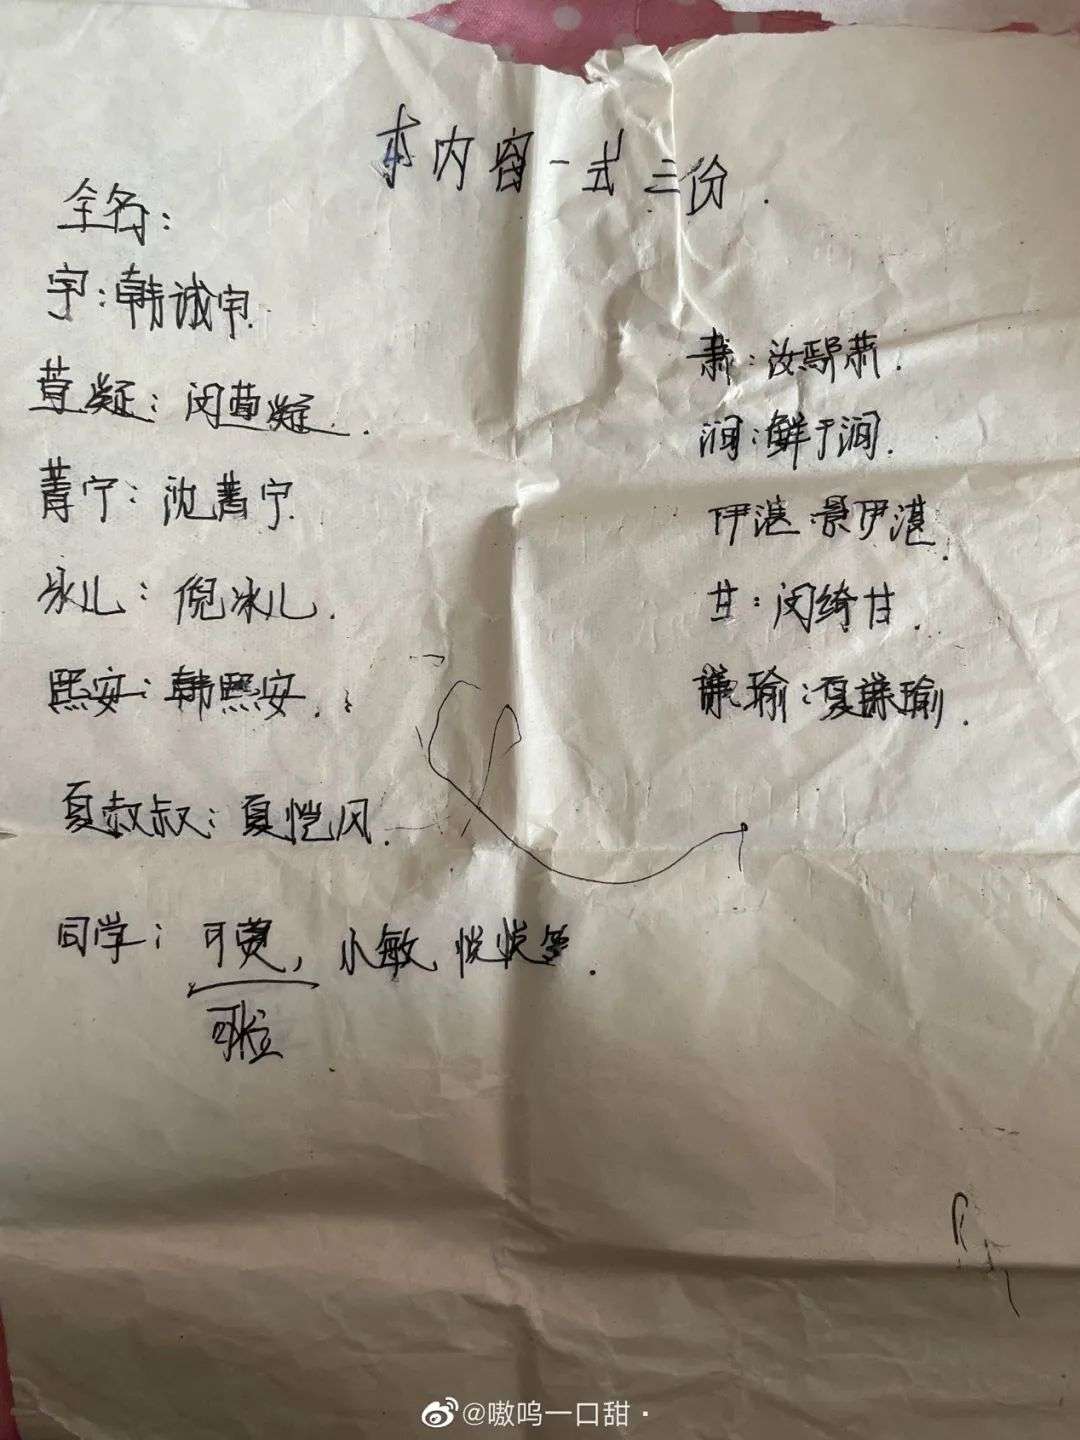 本内容一式三份.
全名:
宇:韩诚宇.
凝:闵凝.
菁宁:沈菁宁.
冰儿:倪冰儿.
熙安:韩熙安.
夏叔叔:夏恺风.
同学:可 小敏, 悦悦
肃:汝鄢肃.
润:鲜于润.
伊湛:景伊湛.
甘:闵绮甘.
谦瑜:夏谦瑜.
@嗷呜一口甜·